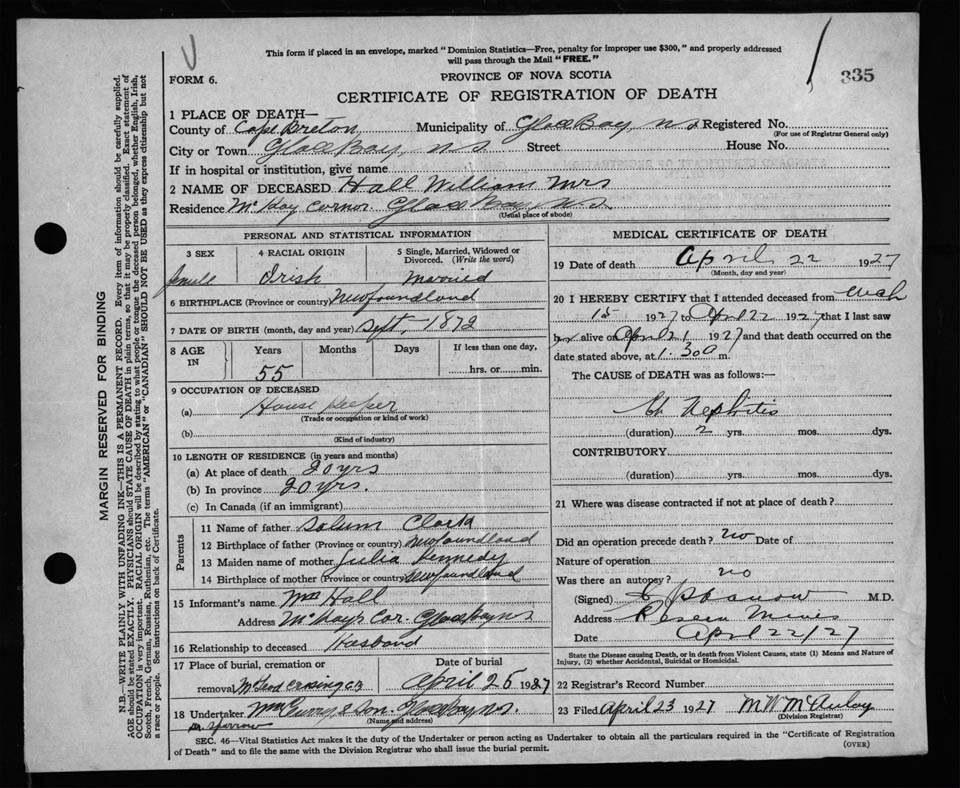 This form if placed in an envelope, marked "Dominion Statistics—Free, penalty for improper use $300," and properly addressed
will pass through the Mail "FREE."
335
FORM 6.
PROVINCE OF NOVA SCOTIA
CERTIFICATE OF REGISTRATION OF DEATH
1 PLACE OF DEATH—
County of Cape Breton, Municipality of Glace Bay, N.S. Registered No.
(For use of Registrar General only)
City or Town Glace Bay, N.S. Street House No.
If in hospital or institution, give name
2 NAME OF DECEASED Hall William Mrs
Residence McKay Cornor Glace Bay, N.S.
(Usual place of abode)
PERSONAL AND STATISTICAL INFORMATION
3 SEX 4 RACIAL ORIGIN 5 Single, Married, Widowed or
Divorced. (Write the word)
Female Irish Married
6 BIRTHPLACE (Province or country) Newfoundland
7 DATE OF BIRTH (month, day and year) Sept, 1872
8 AGE IN Years Months Days If less than one day,
55 hrs. or min.
9 OCCUPATION OF DECEASED
(a) House Keeper
(Trade or occupation or kind of work)
(b)
(Kind of industry)
10 LENGTH OF RESIDENCE (in years and months)
(a) At place of death 20 yrs
(b) In province 20 yrs.
(c) In Canada (if an immigrant)
Parents
11 Name of father Clark
12 Birthplace of father (Province or country) Newfoundland
13 Maiden name of mother Julia Kennedy
14 Birthplace of mother (Province or country) Newfoundland
15 Informant's name Hall
Address McKays Cor. Glace Bay N.S
16 Relationship to deceased Husband
17 Place of burial, cremation or Date of burial
removal April 25 1927
18 Undertaker & Son. Glace Bay N.S.
(Name and address)
Dr. Sparrow
MEDICAL CERTIFICATE OF DEATH
19 Date of death April 22 1927
(Month, day and year)
20 I HEREBY CERTIFY that I attended deceased from
15 1927 to April 22 1927 that I last saw
her alive on April 21 1927 and that death occurred on the
date stated above, at 1.30 a m.
The CAUSE of DEATH was as follows:—
Ch Nephritis
(duration) 2 yrs. mos. dys.
CONTRIBUTORY
(duration) yrs. mos. dys.
21 Where was disease contracted if not at place of death?
Did an operation precede death? no Date of
Nature of operation
Was there an autopsy? no
(Signed) M.D.
Address Reserve Mines
Date April 22/27
State the Disease causing Death, or in death from Violent Causes, state (1) Means and Nature of
Injury, (2) whether Accidental, Suicidal or Homicidal.
22 Registrar's Record Number
23 Filed April 23 1927 M W McAuley
(Division Registrar)
SEC. 46—Vital Statistics Act makes it the duty of the Undertaker or person acting as Undertaker to obtain all the particulars required in the "Certificate of Registration
of Death" and to file the same with the Division Registrar who shall issue the burial permit. (OVER)
MARGIN RESERVED FOR BINDING
N.B.—WRITE PLAINLY WITH UNFADING INK—THIS IS A PERMANENT RECORD. Every item of information should be carefully supplied.
AGE should be stated EXACTLY. PHYSICIANS should STATE CAUSE OF DEATH in plain terms, so that it may be properly classified. Exact statement of
OCCUPATION is very important. RACIAL ORIGIN will be described by stating to what people or tongue the deceased person belonged, whether English, Irish,
Scotch, French, German, Russian, Ruthenian, etc. The terms "AMERICAN" or "CANADIAN" SHOULD NOT BE USED as they express citizenship but not
a race or people. See instructions on back of Certificate.